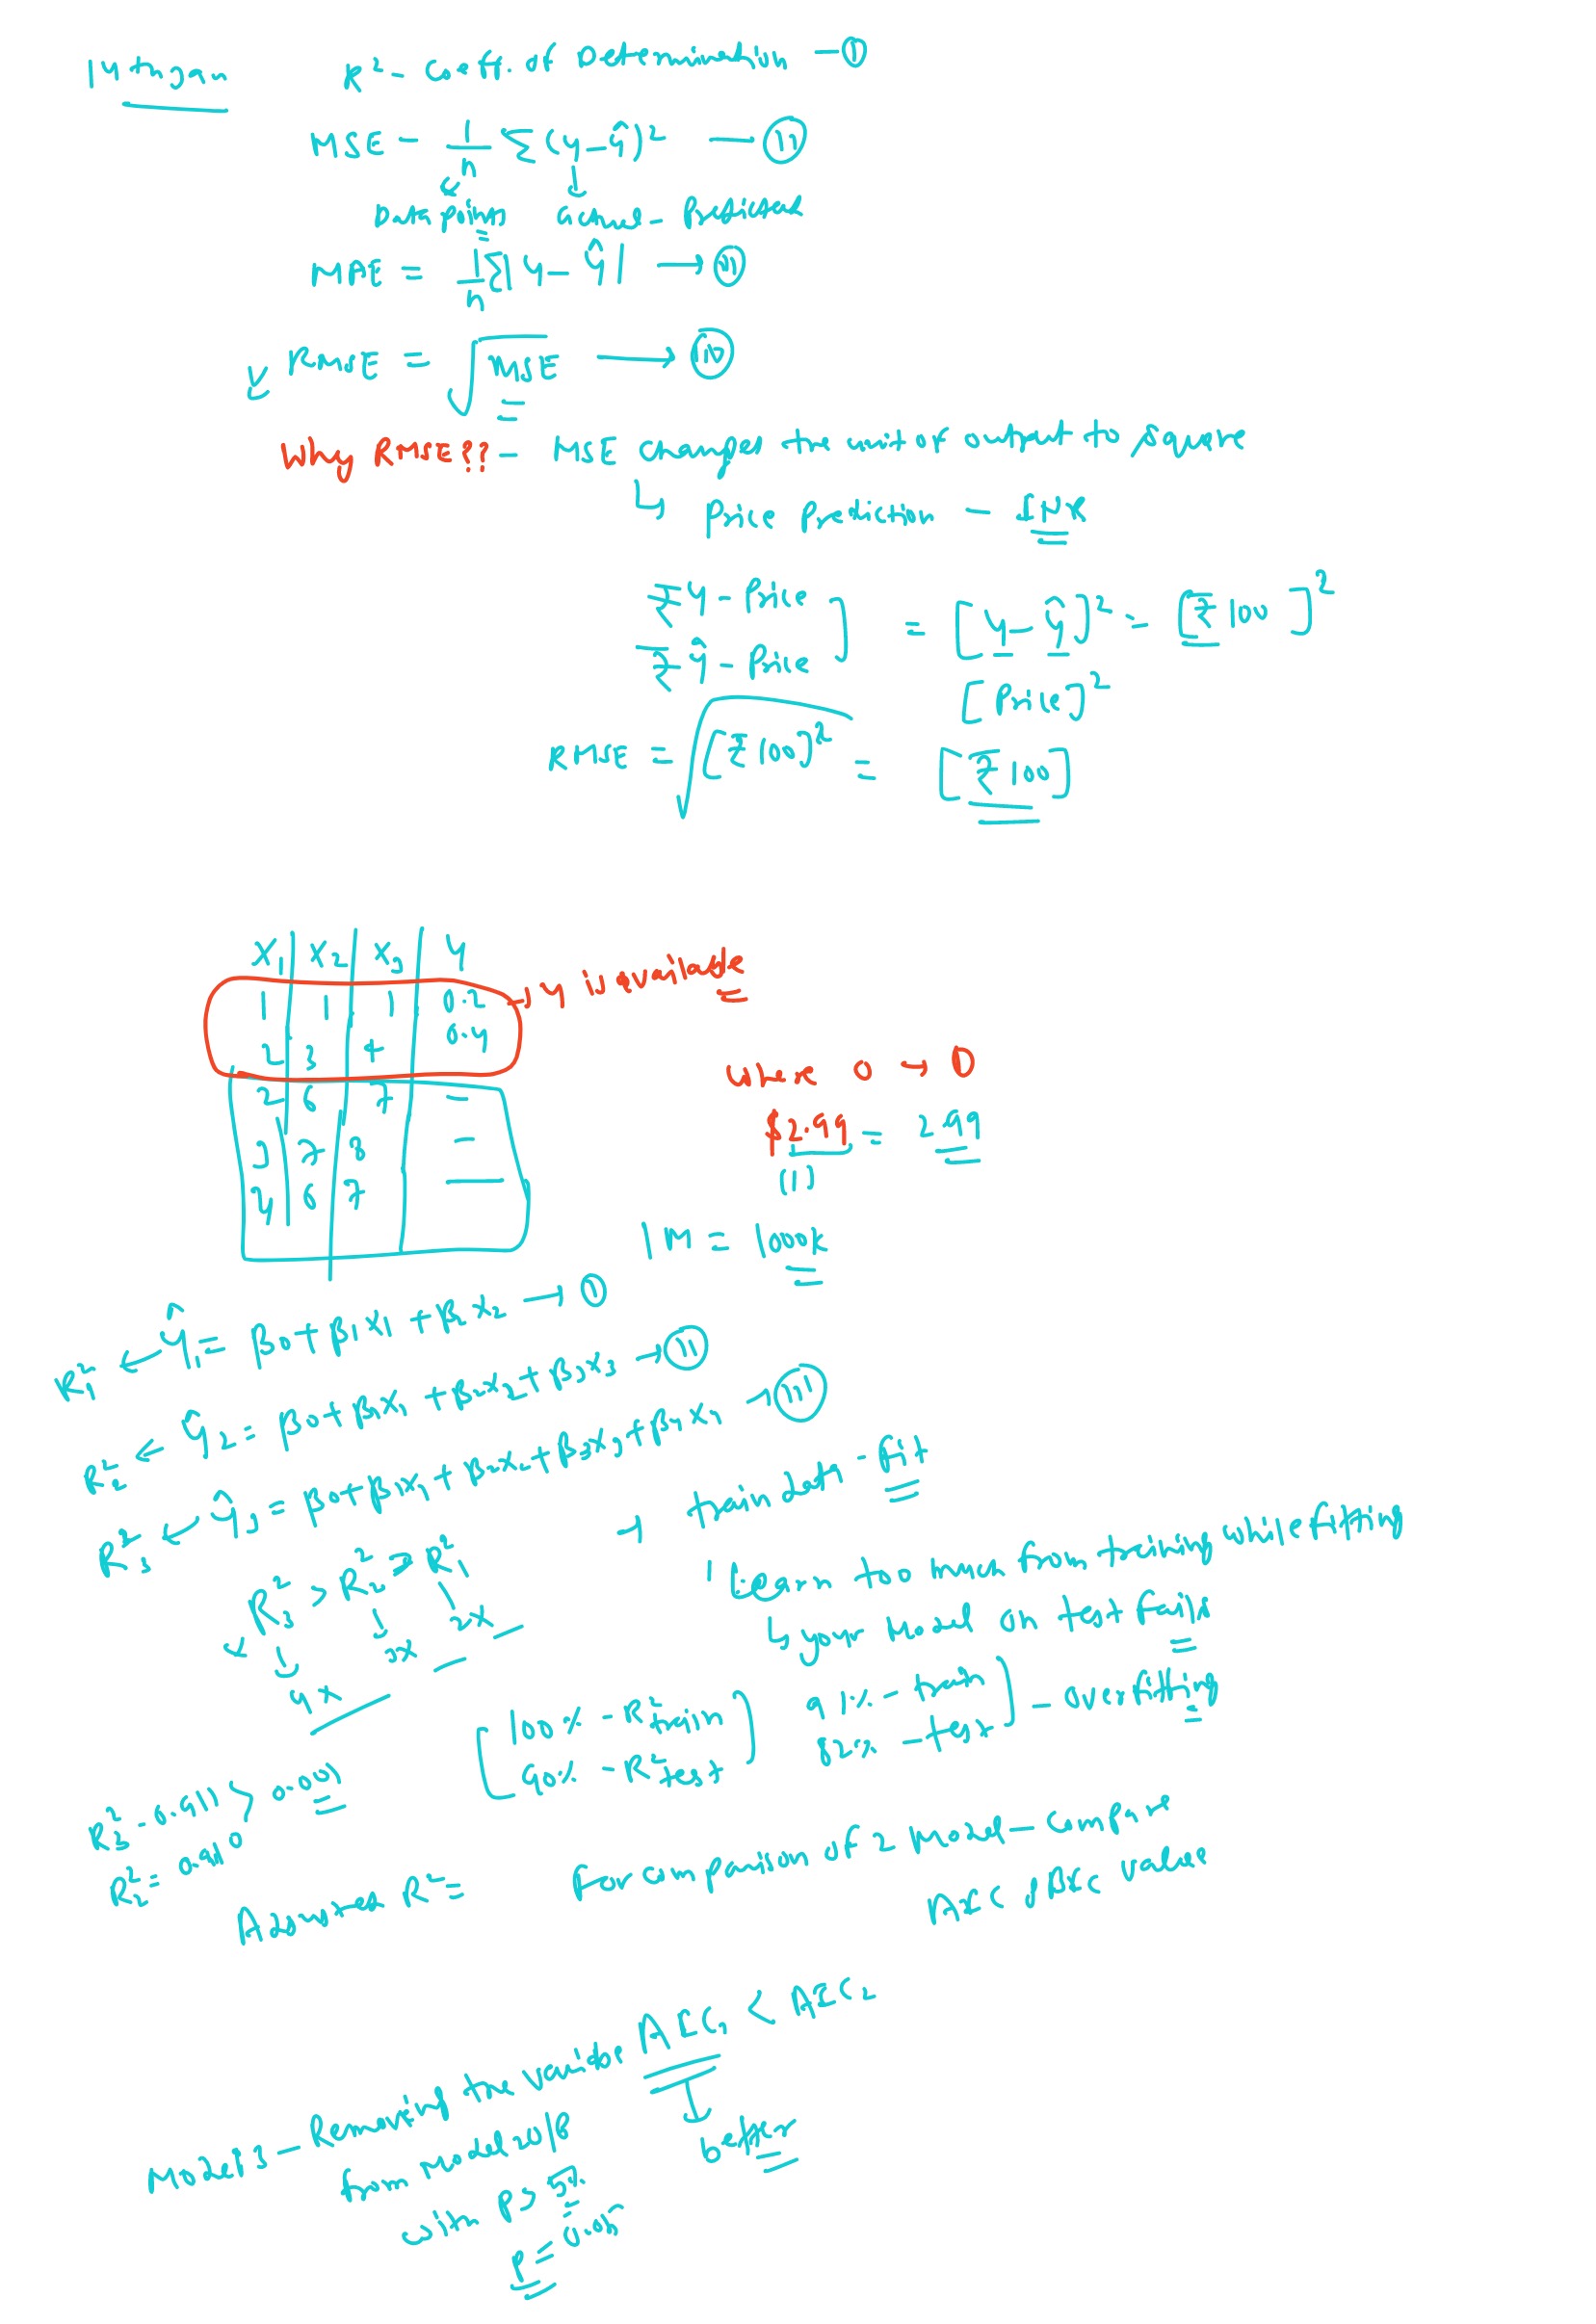 14th Jan
R² - Coeff. of Determination - ①
MSE - 1/n Σ(y-ŷ)² — ⑪
Data points Actual - Predicted
MAE = 1/n Σ|y - ŷ| → ⑪⑪
RMSE = √MSE → ⑩
Why RMSE?? - MSE changed the unit of output to square
↳ Price Prediction - INR
₹ y - Price
₹ ŷ - Price ] = [y - ŷ]² = [₹100]²
[Price]²
RMSE = √[₹100]² = [₹100]
X₁ | X₂ | X₃ | y
1 | 1 | 1 | 0.2
2 3 4 0.4
→ y is available
2 6 7 -
3 7 8 -
4 6 7 -
where 0 → 0
$2.99 = 299
(1)
1M = 1000K
R₁² ← ŷ₁ = β0 + β1x1 + β2x2 → ①
R₂² ← ŷ2 = β0 + β1x1 + β2x2 + β3x3 → ⑪
R₃² ← ŷ3 = β0 + β1x1 + β2x2 + β3x3 + β4x4 → ⑪⑪
R₃² > R₂² > R₁²
4x 3x 2x
→ train data - fit
Learn too much from training while fitting
↳ your model on test fails
[100% - R²train
90% - R²test]
91% - train
82% - test ] - overfitting
R₃² = 0.911
R₂² = 0.910 } 0.001
Adjusted R² =
For comparison of 2 Model - Compare
AIC & BIC value
AIC₁ < AIC₂
better
Model 3 - Removing the variable
from Model 2
with P > 5%
P = 0.05